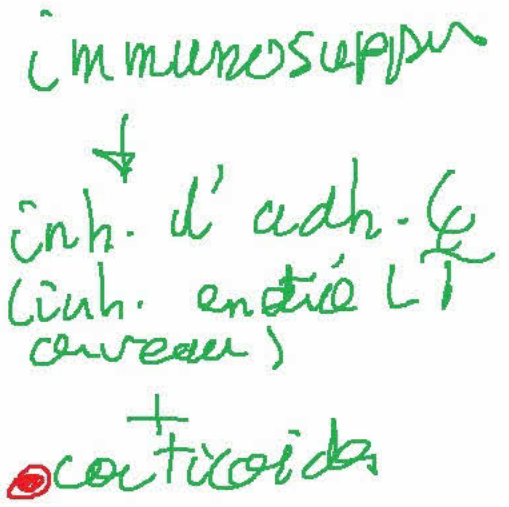 immunosuppr
↓
inh. d'adh. ₵
(inh. entrée LT
cerveau)
+
corticoïdes